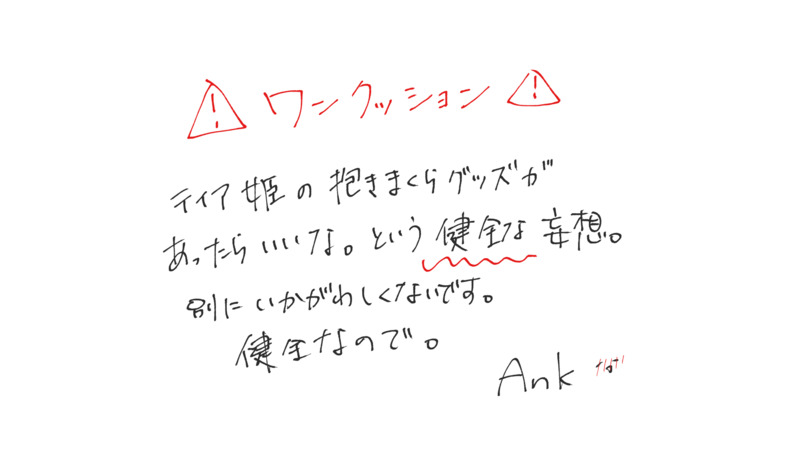 ⚠ ワンクッション ⚠
ティア姫の抱きまくらグッズが
あったらいいな。という健全な妄想。
別にいかがわしくないです。
健全なので。
Ank